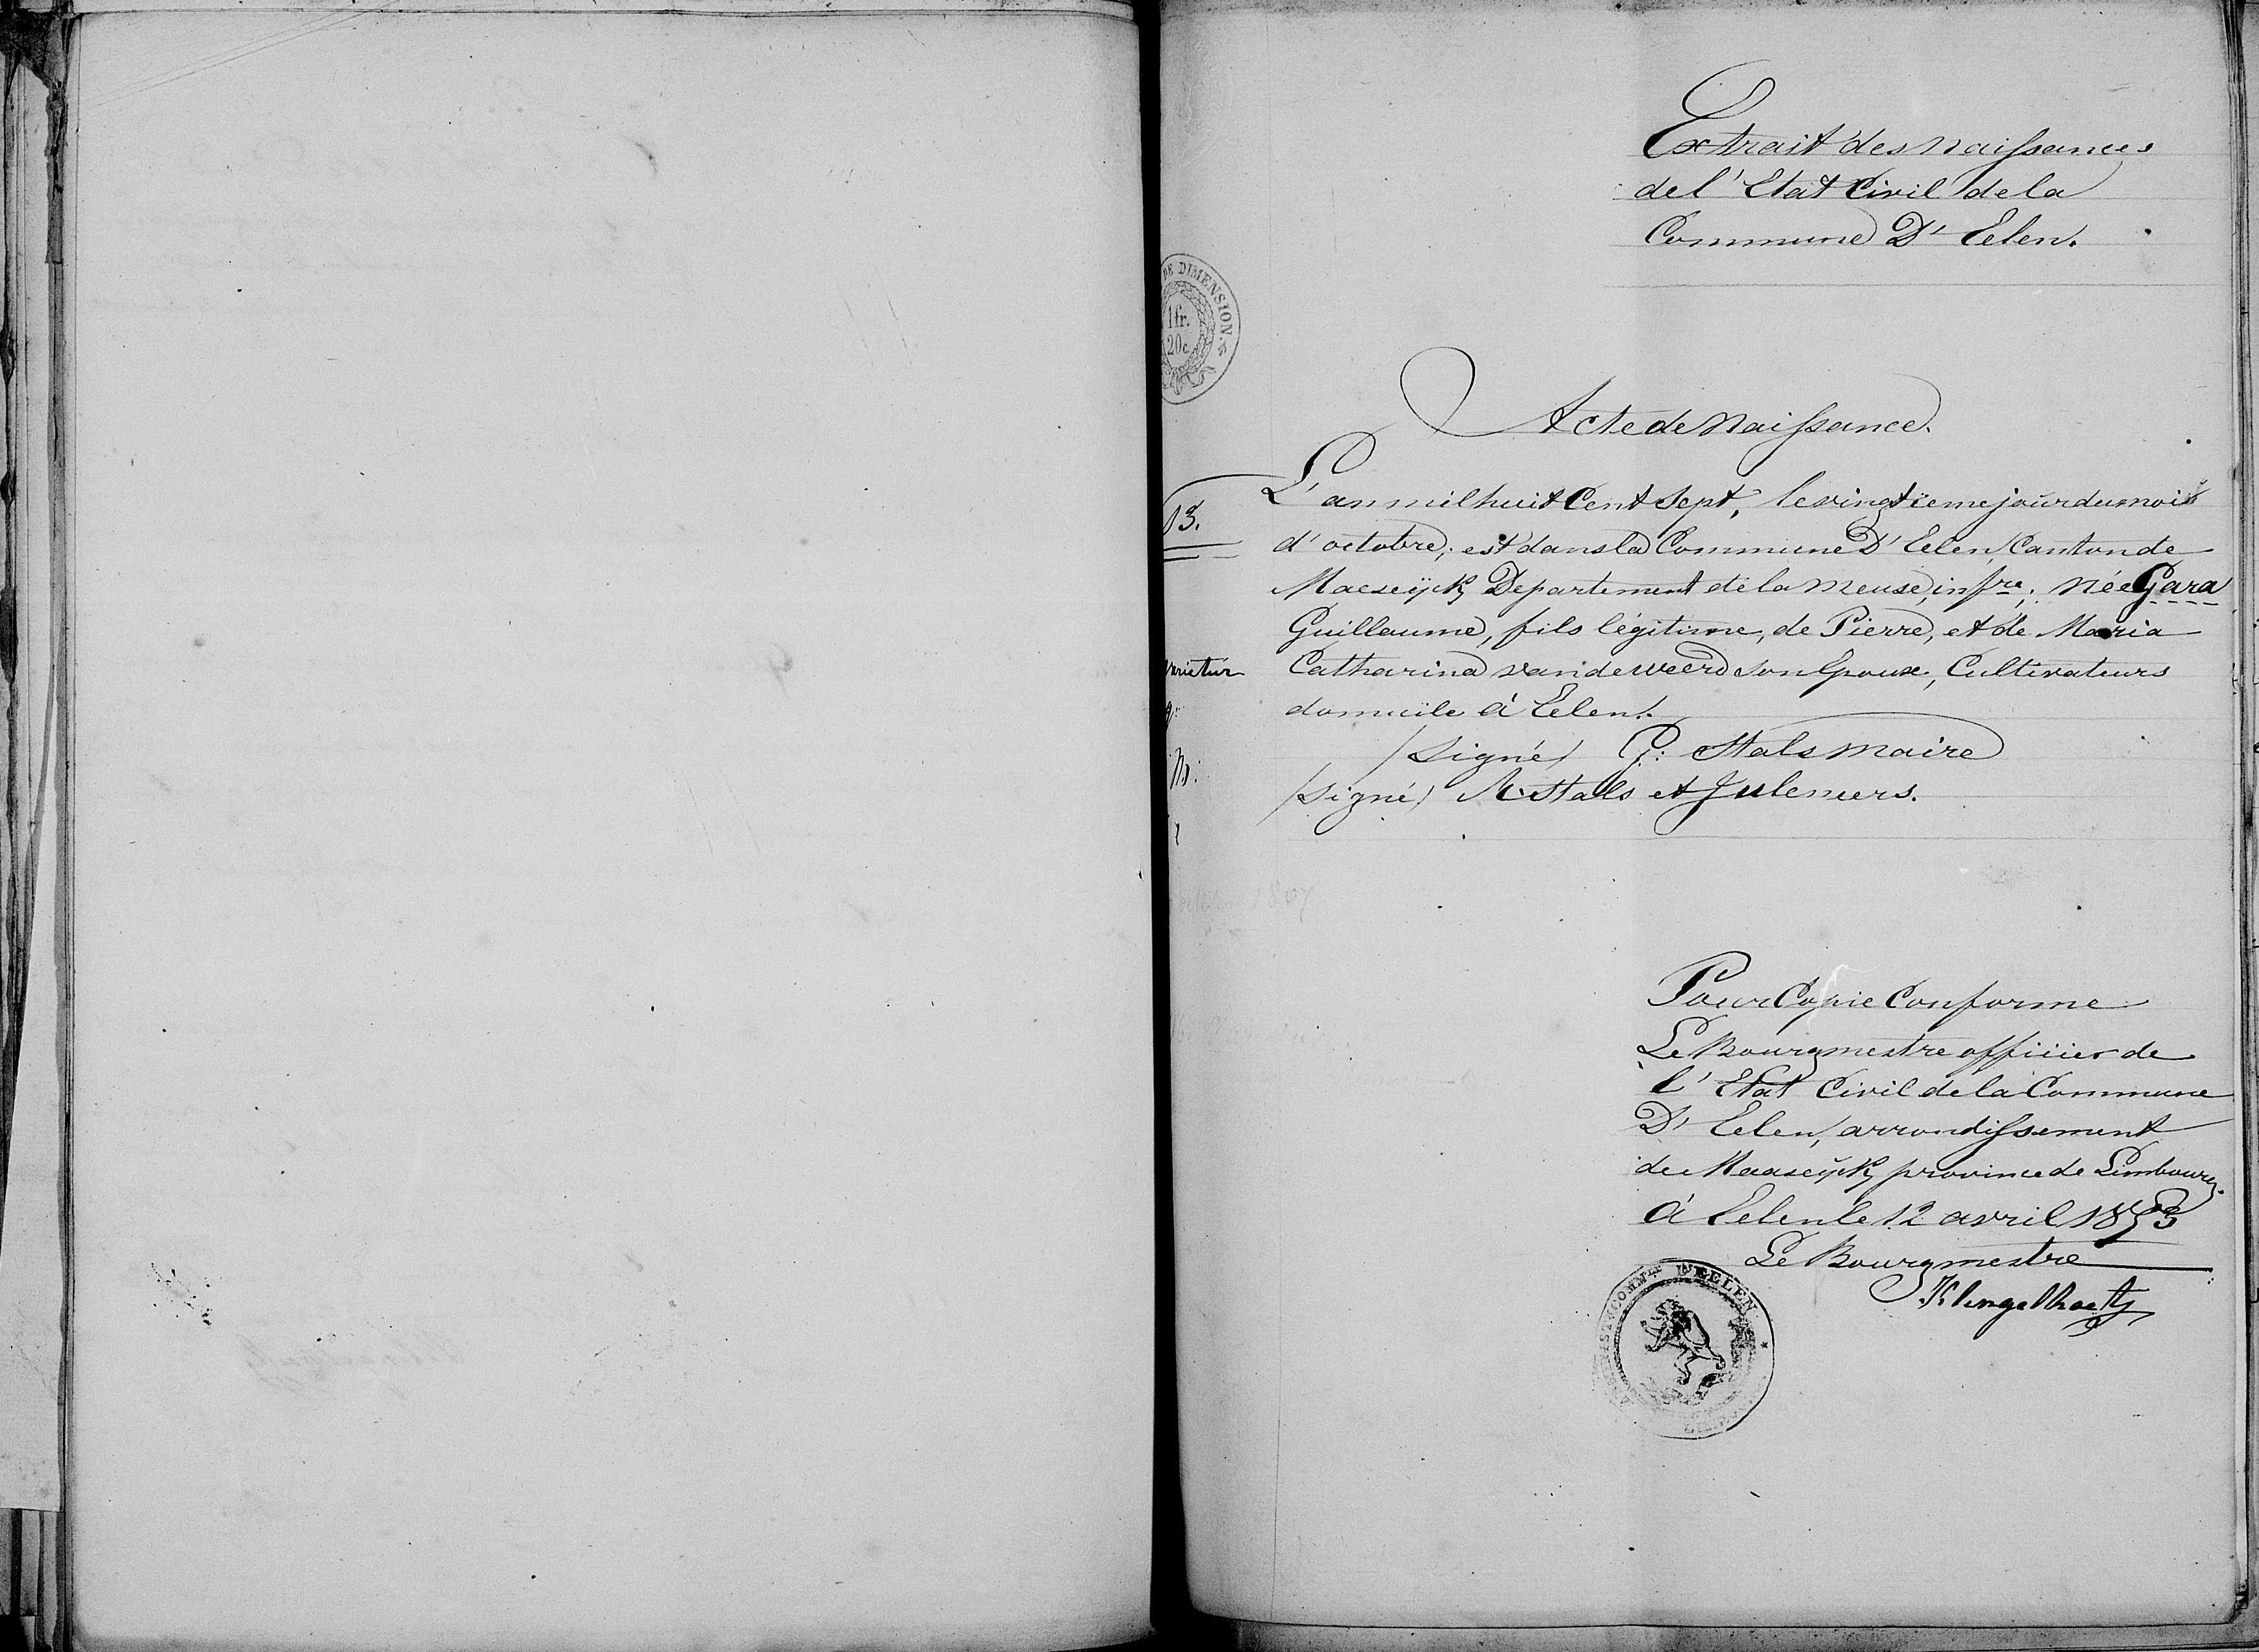 Extrait des naissances
de l'Etat Civil de la
Commune D'Eelen.
DE DIMENSION.
1fr.
20c.
Acte de Naissance.
13.
L'an mil huit Cent Sept, le vingtieme jour du mois
d'octobre, est dans la Commune D'Eelen, Canton de
Maeseÿck Departement de la meuse, infre; née Gara
Guillaume, fils légitime, de Pierre, et de Maria
Catharina vandeweerd son Epouse, Cultivateurs
domicile à Eelen.
varietur
(Signé) G: Stals Maire
(Signé) Stals et Juleniers.
1807
Pour Copie Conforme
Le Bourgmestre officier de
l'Etat Civil de la Commune
D'Eelen, arrondissement
de Maaseÿck province de Limbourg.
à Eelen le 12 avril 1853
Le Bourgmestre
COMMNE D'EELEN